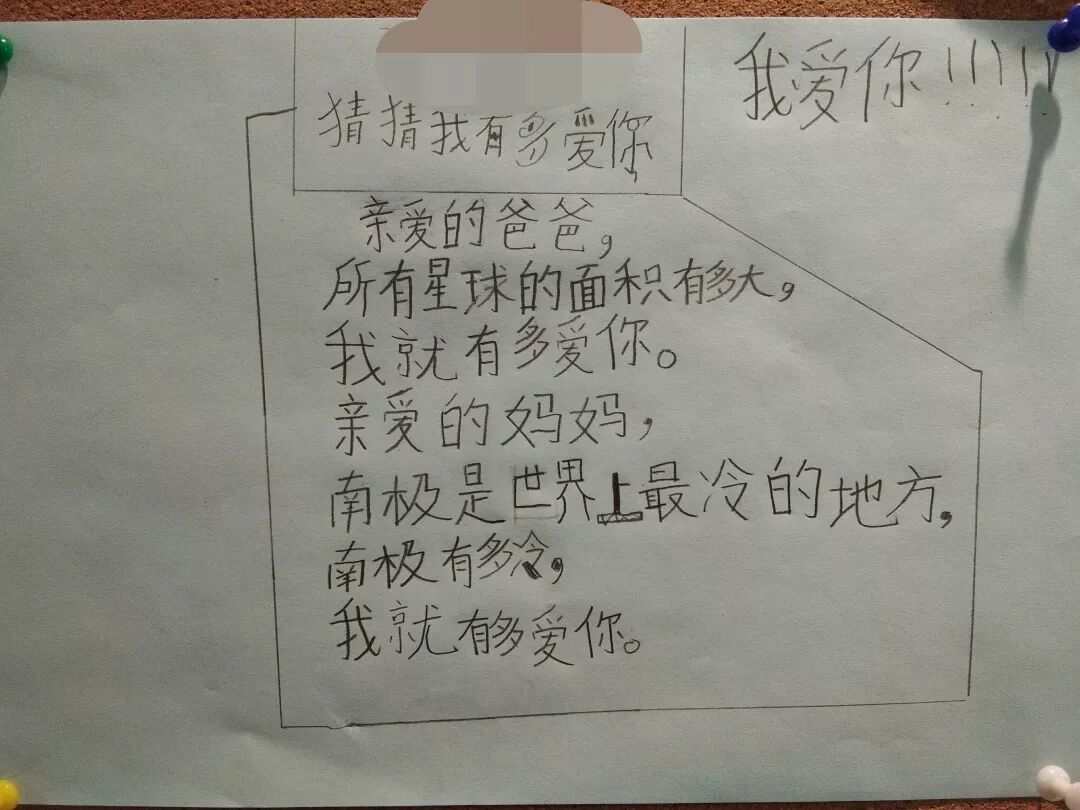 我爱你!!!!!!
猜猜我有多爱你
亲爱的爸爸，
所有星球的面积有多大，
我就有多爱你。
亲爱的妈妈，
南极是世界上最冷的地方，
南极有多冷，
我就有多爱你。